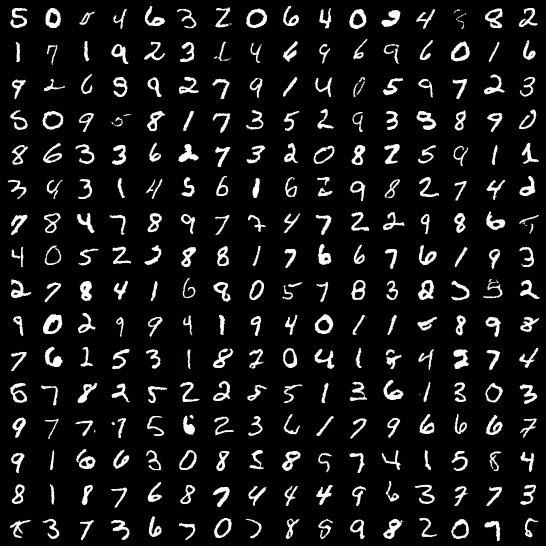 5 0 0 4 6 3 2 0 6 4 0 9 4 8 2
1 7 1 9 2 3 1 4 6 9 6 9 6 0 1 6
9 2 6 9 9 2 7 9 1 4 0 5 9 7 2 3
5 0 9 5 8 1 7 3 5 2 9 3 9 8 9 0
8 6 3 3 6 2 7 3 2 0 8 2 5 9 1 1
3 9 3 1 4 5 6 1 6 2 9 8 2 7 4 2
7 8 4 7 8 9 7 7 4 7 2 2 9 8 6 5
4 0 5 2 8 8 1 7 6 6 7 6 1 9 3
2 7 8 4 1 6 8 0 5 7 8 3 8 5 2
9 0 2 9 9 4 1 9 4 0 1 1 8 9 8
7 6 2 5 3 1 8 2 0 4 1 8 4 2 7 4
6 7 8 2 5 2 2 8 5 1 3 6 1 3 0 3
9 7 7 9 5 6 2 3 6 1 7 9 6 6 6 7
9 1 6 6 3 0 8 8 9 7 4 1 5 8 4
8 1 8 7 6 8 7 4 4 4 9 6 3 7 7 3
3 7 3 6 7 0 7 8 8 9 8 2 0 7 5